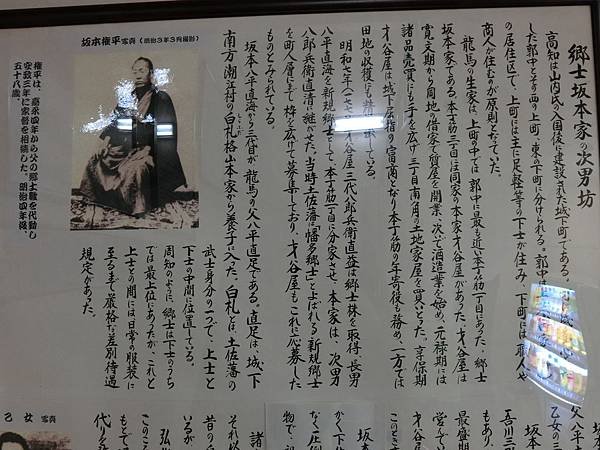 郷士坂本家の次男坊
高知は山内氏の入国後に建設された城下町である。
した郭中とその西の上町、東の下町に分けられる。郭中
の居住区で、上町には主に足軽等の下士が住み、下町には職人や
商人が住むのが原則となっていた。
龍馬の生家は、上町の中では郭中に最も近い本丁筋一丁目にあった郷士
坂本家である。本丁筋三丁目には同家の本家才谷屋があった。才谷屋は
寛文期から周地の借家で質屋を開業、次いで酒造業を始め、元禄期には
諸品売買にも手を広げ、三丁目南角の土地家屋を買いとった。享保期
才谷屋は、城下
の富商となり本丁筋の年寄役も務め、一方では
田地の収穫にも
している。
明和七年
八谷屋三代八郎兵衛直益は郷士株を取得、長男
八平直海を新規郷士として、本丁筋一丁目に分家させ、本家は、次男
八郎兵衛直清に継がせた。当時土佐藩は「幡多郷士」とよばれる新規郷士
を町人層にまで枠を広げて募集しており、才谷屋もこれに応募した
ものとみられている。
坂本八平直海から三代目が龍馬の父八平直足である。直足は、城下
南方の潮江村の白札格山本家から養子に入った。白札とは、土佐藩の
武士身分の一つで、上士と
下士の中間に位置している。
周知のように、郷士は下士のうち
では最上位にあったが、これと
上士との間には日常の服装に
至るまで厳格な差別待遇
規定があった。
坂本権平写真(明治3年3月撮影)
権平は、嘉永四年から父の郷士職を代勤し
安政三年に家督を相続した。明治四年没、
五十八歳。
父八平
乙女の三
坂本
吾川三
もあり、
最盛期
営んで
才谷屋
このとき
坂本
かく下
なく一
物で、
諸
それ
昔の
いるが
弘
このこ
もとで
代りを
乙女 写真